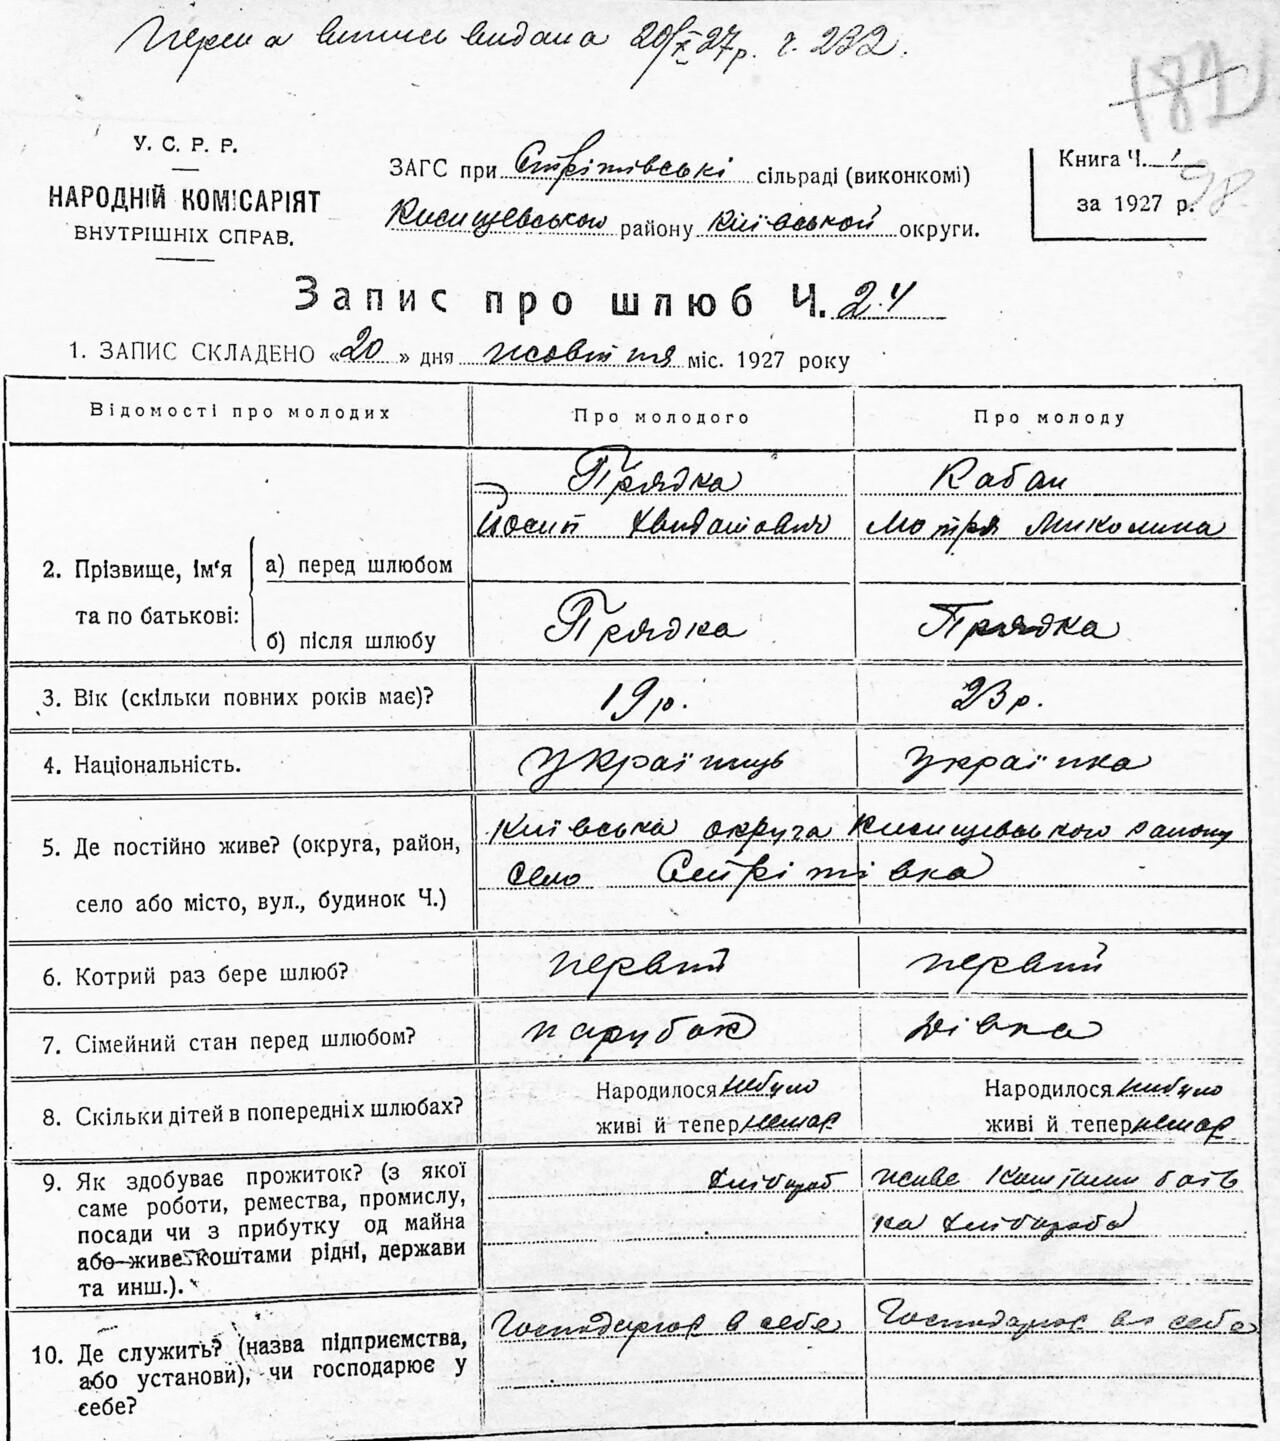 Перша витись видана 20/X 27р. ч. 222.
182
98
У. С. Р. Р.
НАРОДНІЙ КОМІСАРІЯТ
ВНУТРІШНІХ СПРАВ.
ЗАГС при Стрітівські сільраді (виконкомі)
Кисищевського району Київської округи.
Книга Ч. 1
за 1927 р.
Запис про шлюб Ч. 24
1. ЗАПИС СКЛАДЕНО «20» дня жовтня міс. 1927 року
Відомості про молодих
Про молодого
Про молоду
2. Прізвище, ім'я та по батькові:
а) перед шлюбом
Прядка
Йосип
Кабан
Мотря Миколина
б) після шлюбу
Прядка
Прядка
3. Вік (скільки повних років має)?
19 р.
23 р.
4. Національність.
Українець
Українка
5. Де постійно живе? (округа, район,
село або місто, вул., будинок Ч.)
Київська округа Кисищевського району
село Стрітівка
6. Котрий раз бере шлюб?
первий
первий
7. Сімейний стан перед шлюбом?
парубок
дівка
8. Скільки дітей в попередніх шлюбах?
Народилося небуло
живі й тепер немає
Народилося небуло
живі й тепер немає
9. Як здобуває прожиток? (з якої
саме роботи, ремества, промислу,
посади чи з прибутку од майна
або живе коштами рідні, держави
та инш.).
хлібороб
живе коштами бать
ка хлібороба
10. Де служить? (назва підприємства,
або установи), чи господарює у
себе?
Господарює в себе
Господарює в себе